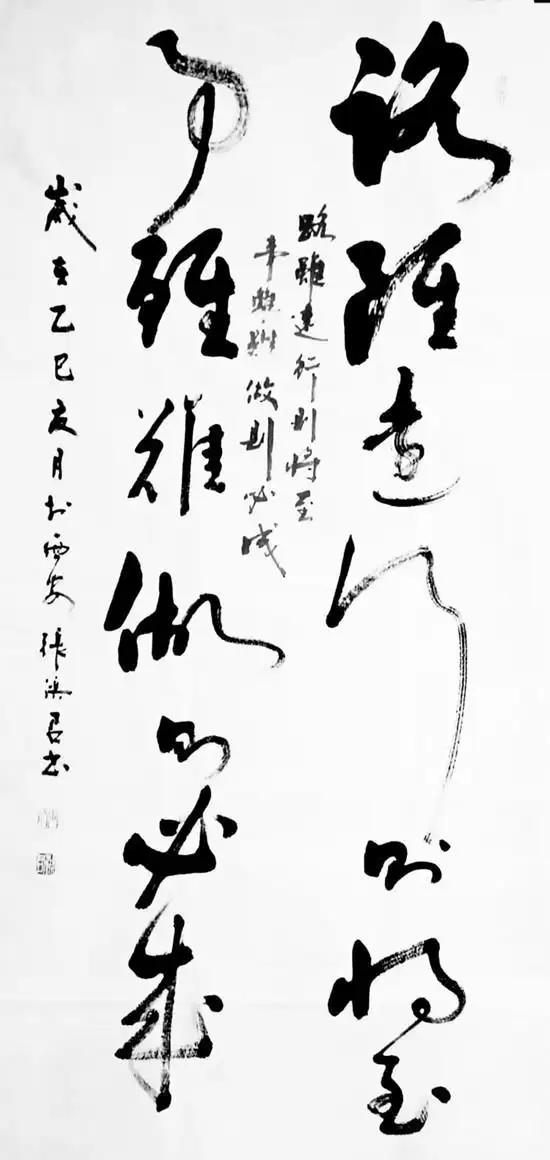 路雖遠行則將至
路雖遠行則將至
事雖難做則必成
事雖難做則必成
歲在乙巳夏月於西安 張洪君書